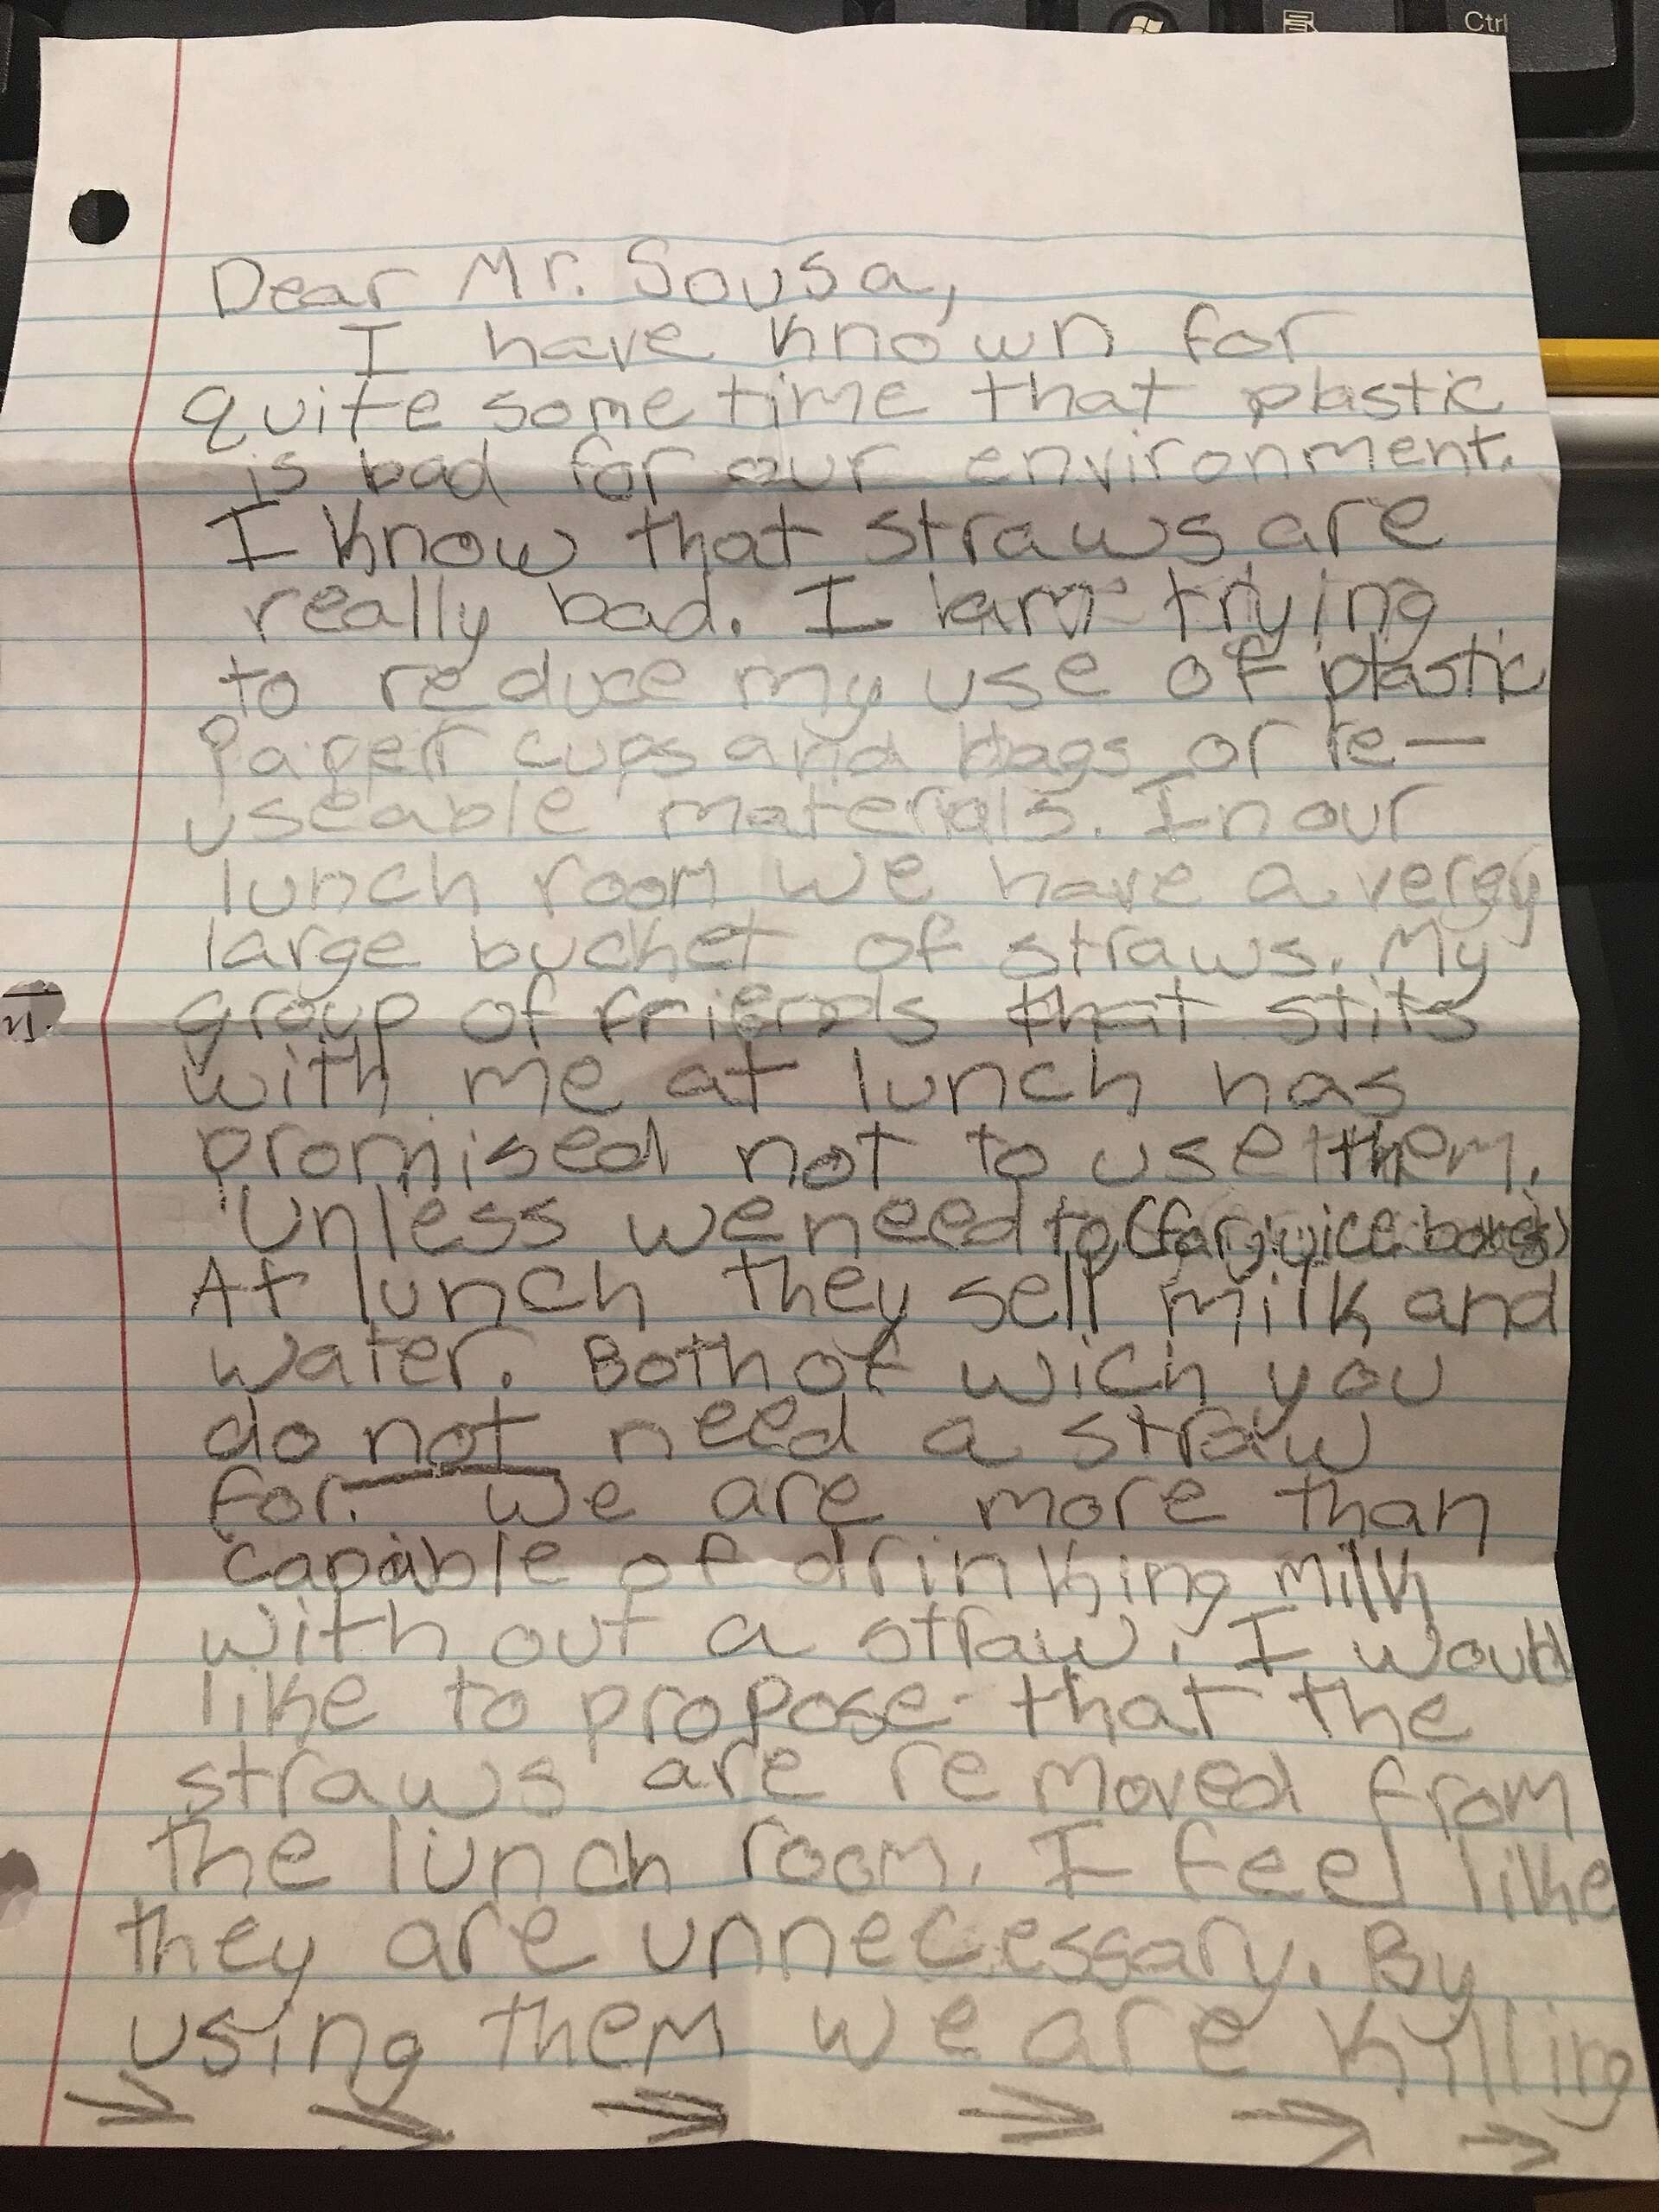 Ctrl
Dear Mr. Sousa,
I have known for
quite some time that plastic
is bad for our environment.
I know that straws are
really bad. I am trying
to reduce my use of plastic
Paper cups and bags or re-
useable materials. In our
lunch room we have a very
large bucket of straws. My
group of friends that sits
with me at lunch has
promised not to use them.
Unless we need to (for juice boxes)
At lunch they sell milk and
water. Both of wich you
do not need a straw
for. We are more than
capable of drinking milk
with out a straw. I would
like to propose that the
straws are removed from
the lunch room. I feel like
they are unnecessary. By
using them we are killing